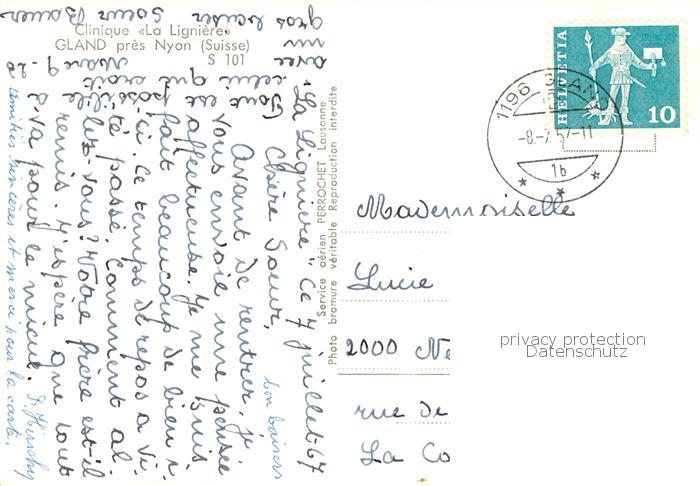 Clinique «La Lignière»
GLAND près Nyon (Suisse)
S 101
"La Lignière" Ce 7 juillet-67
Chère Soeur,
Avant de rentrer, je
vous envoie une pensée
affectueuse. Je me suis
fait beaucoup de bien i-
ci. Ce temps de repos a vi-
te passé. Comment al-
lez-vous? Votre frère est-il
remis? J'espère que tout
va pour le mieux.
Tout est possible à
celui qui croit
Marc 9-23
avec un
gros baiser
Soeur
bon baisers
Amitiés sincères et merci pour la carte.
Photo bromure véritable Reproduction interdite
Service aérien PERROCHET Lausanne
HELVETIA
10
1196 GLAND
-8.-7.67-11
1b
Mademoiselle
Lucie
2000 Ne
rue de
La Co
privacy protection
Datenschutz